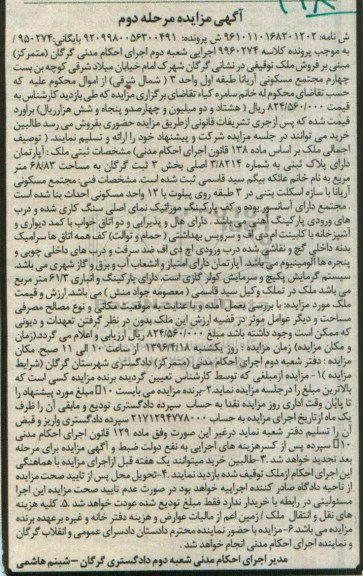 آگهی مزایده مرحله دوم
ش نامه: ۹۶۱۰۱۱۰۱۶۸۲۰۱۲۰۲ ش پرونده: ۹۲۰۹۹۸۰۰۵۶۳۰۰۴۹۱ بایگانی:۹۵۰۲۷۴ /
به موجب پرونده کلاسه ۹۹۶۰۲۷۴ اجرایی شعبه دوم اجرای احکام مدنی گرگان (متمرکز)
مبنی بر فروش ملک توقیفی در نشانی گرگان شهرک امام خیابان میلاد شرقی کوچه بن بست
چهارم مجتمع مسکونی آریانا طبقه اول واحد ۳ ( شمال شرقی) از اموال محکوم علیه که
حسب تقاضای محکوم له خانم سامره کیاء تقاضای برگزاری مزایده که طی بازدید کارشناس به
قیمت ۸۲۴/۵۶۰/۰۰۰ ریال ( هشتاد و دو میلیون و چهارصدو پنجاه و شش هزارریال) برآورد
قیمت شده که پس ازجری تشریفات قانونی ازطریق مزایده حضوری بفروش می رسد طالبین
خرید می توانند در جلسه مزایده شرکت و پیشنهاد خود را ارائه و تسلیم نمایند. ( توصیف
اجمالی ملک بر اساس ماده ۱۳۸ قانون اجرای احکام مدنی) مشخصات ثبتی ملک : آپارتمان
دارای پلاک ثبتی به شماره ۳/۸۲۱۴ اصلی بخش ۳ ثبت گرگان به مساحت ۶۸/۸۳ متر
مربع به نام خانم عاتکه بیگم سید قاسمی ثبت شده است. مشخصات فنی: مجتمع مسکونی
آریانا با سازه اسکلت بتنی در ۳ طبقه روی پیلوت با ۱۲ واحد مسکونی احداث بنا شده است
مجتمع دارای آسانسور بوده و کف پارکینگ موزائیک نمای اصلی سنگ کاری شده و درب
های ورودی پارکینگ آهنی می باشد. دارای هال و پذیرایی و دو اتاق خواب با کمد دیواری و
آشپزخانه با کابینت ام دی اف و سرویس بهداشتی ( حمام و توالت) کف همه اتاق ها سرامیک
بدنه داخلی گچ و نقاشی شده درب ورودی اچ دی اف ضد سرقت و درب های داخلی چوبی و
پنجره ها آلومینیوم می باشد. آپارتمان دارای امتیاز و انشعاب آب و برق و گاز شهری می باشد.
سیستم گرمایش پکیج و سرمایش کولر گازی است. دارای پارکینگ و انباری ۶۱/۳ متر مربع
می باشد ملک در تملک وکیل سید قاسمی ( معصومه جواد منش ) می باشد. ارزش و قیمت
ملک مورد مزایده: با بررسی بعمل آمده و با عنایت به موقعیت مکانی و نوع مصالح مصرفی
مساحت و دیگر عوامل موثر در قضیه ارزش این ملک بدون در نظر گرفتن تعهدات و دیونی
که ممکن است وجود داشته باشد مبلغ ۸۲۴/۵۶۰/۰۰۰ ریال ارزیابی و اعلام می گردد.(زمان
و مکان مزایده) زمان مزایده : روز یکشنبه ۱۳۹۶/۴/۱۸ از ساعت ۱۰ الی ۱۱ صبح، مکان
مزایده : دفتر شعبه دوم اجرای احکام مدنی (متمرکز) دادگستری شهرستان گرگان (شرایط
مزایده) ۱- مزایده ازمبلغی که توسط کارشناس تعیین گردیده برنده مزایده کسی است که
بالاترین مبلغ را در جلسه مزایده نماید۲-برنده مزایده می بایست ۱۰٪ مبلغ مورد پیشنهاد را
تا پایان وقت اداری روز مزایده نقدا به حساب سپرده دادگستری تودیع و مابقی آن را ظرف
یک ماه از تاریخ اجرای مزایده به حساب ۲۱۷۱۲۹۴۷۷۸۰۰۰ سپرده دادگستری واریز و قبض
آن را تسلیم دفتر شعبه نماید درغیر این صورت وفق ماده ۱۲۹ قانون اجرای احکام مدنی
۱۰٪ سپرده پس از کسرهزینه های اجرایی به نفع دولت ضبط و آگهی مزایده برای مرحله
بعد تجدید خواهد شد. ۳-طالبین خرید میتوانند یک هفته قبل ازاجرای مزایده با هماهنگی
این اجرای احکام ازملک توقیف شده بازدید نمایند.۴-تحویل محل پس از تایید صحت مزایده
از ناحیه دادگاه صادر کننده اجراییه خواهد بود در صورت عدم تایید صحت مزایده این اجرا
مسئولیتی در رابطه با خریدار ندارد فقط مبلغ تودیع شده عودت خواهد شد. ۵.کلیه هزینه
های نقل و انتقال ملک / زمین اعم از مالیات عوارض و هزینه دفتر خانه و غیره برعهده برنده
مزایده می باشد.۶- مزایده با حضور نماینده محترم دادستان دادسرای عمومی و انقلاب گرگان
و نماینده اجرای احکام مدنی انجام خواهد شد.
مدیر اجرای احکام مدنی شعبه دوم دادگستری گرگان –شبنم هاشمی